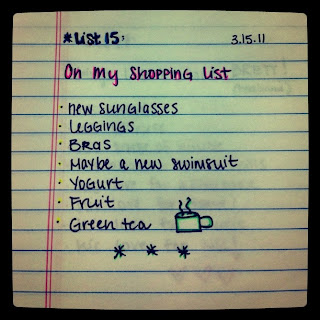 *List 15: 3.15.11
On My Shopping List
· new sunglasses
· Leggings
· Bras
· Maybe a new swimsuit
· Yogurt
· Fruit
· Green tea
* * *